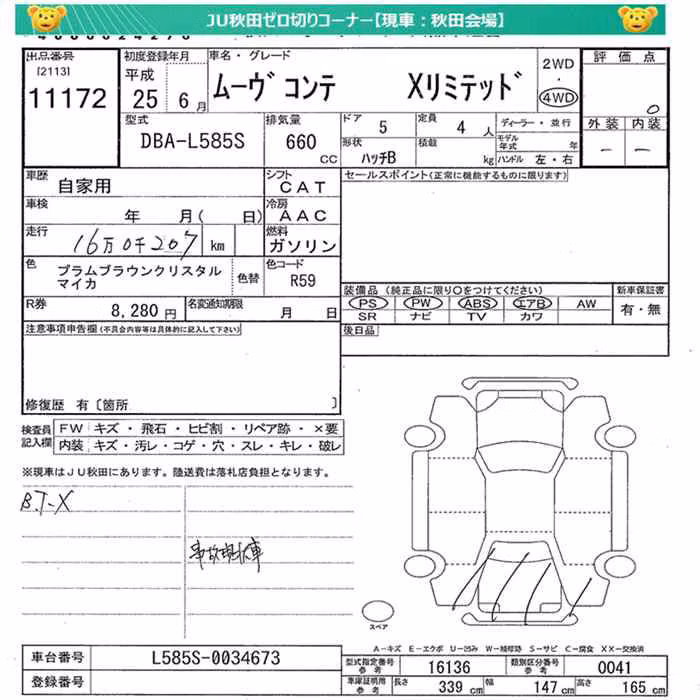 JU秋田ゼロ切りコーナー【現車：秋田会場】
出品番号 初度登録年月 車名・グレード 2WD 評価点
[2113] 平成 ・
11172 25 6月 ムーヴ コンテ Xリミテッド 4WD 0
型式 排気量 ドア 定員 ディーラー・並行 外装 内装
DBA-L585S 660 CC 5 4人 モデル年式 年 － －
形状 積載 ハンドル 左・右
ハッチB kg
車歴 自家用 シフト CAT セールスポイント(正常に機能するものに限ります)
車検 年 月( 日) 冷房 AAC
走行 16万0千207 km 燃料 ガソリン
色 プラムブラウンクリスタルマイカ 色替 色コード R59
装備品 (純正品に限り○をつけてください) 新車保証書
PS PW ABS エアB AW 有・無
SR ナビ TV カワ
R券 8,280円 名変通知期限 月 日
後日品
注意事項申告欄(不具合内容等は具体的に記入して下さい)
修復歴 有〔箇所 〕
検査員記入欄 FW キズ・飛石・ヒビ割・リペア跡・×要
内装 キズ・汚レ・コゲ・穴・スレ・キレ・破レ
※現車はJU秋田にあります。陸送費は落札店負担となります。
B.T-X
事故現状車
スペア
A－キズ E－エクボ U－凹み W－補修跡 S－サビ C－腐食 XX－交換済
車台番号 L585S-0034673
型式指定番号 参考 16136 類別区分番号 参考 0041
登録番号
車庫証明用 参考 長さ 339 cm 幅 147 cm 高さ 165 cm